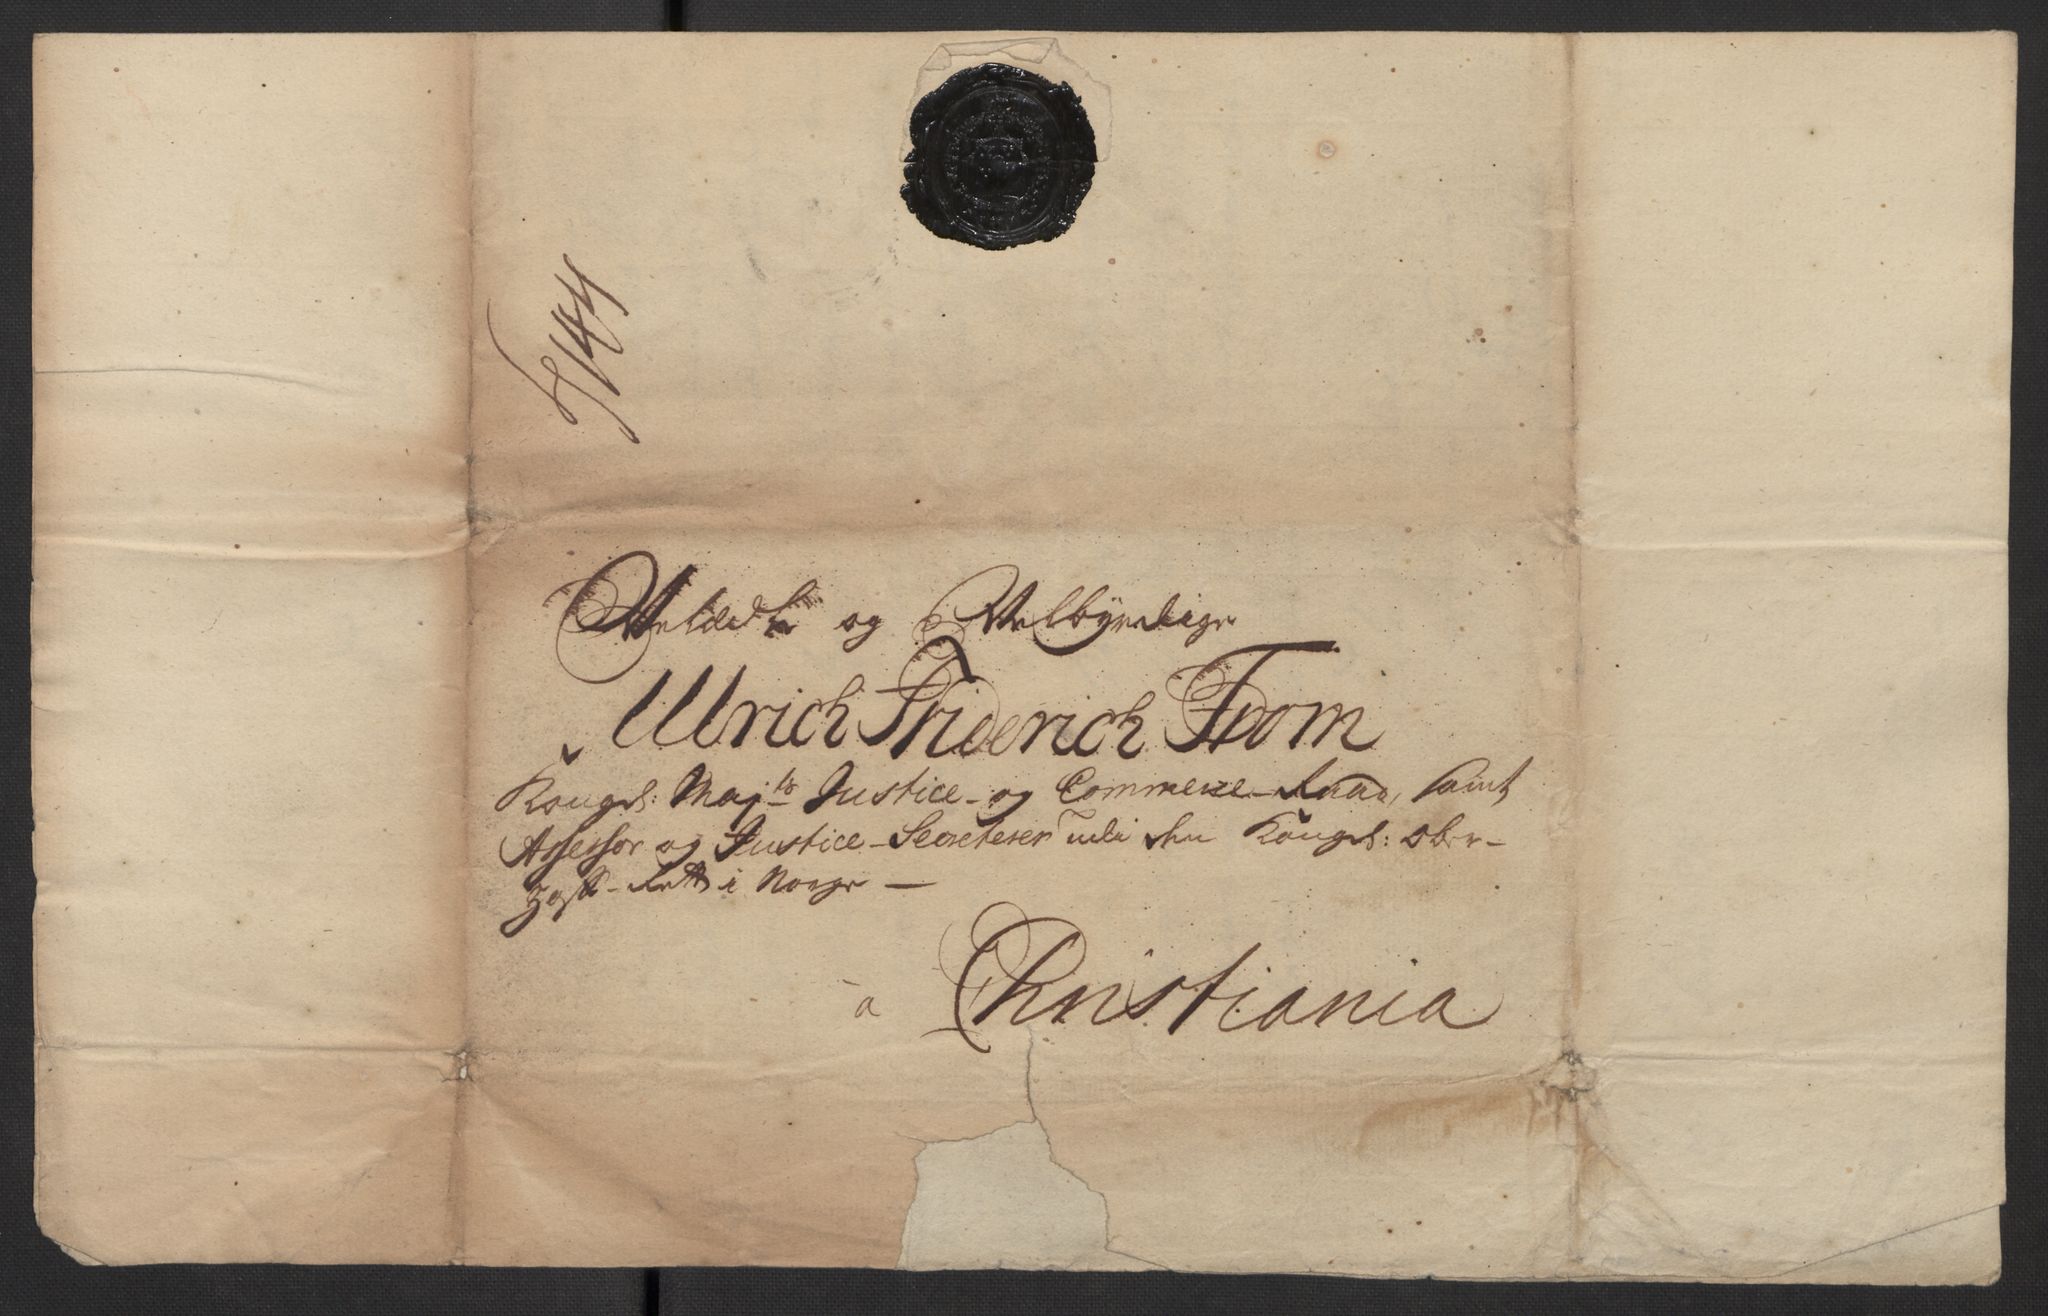 144
Veldedle og Velbÿrdige
Ulrich Friderich From
Kongel: Maj:ts Justice- og Commerce-Raad, samt
Assessor og Justice-Secreterer udi den Kongel: Ober-
Hoff-Rett i Norge —
a Christiania